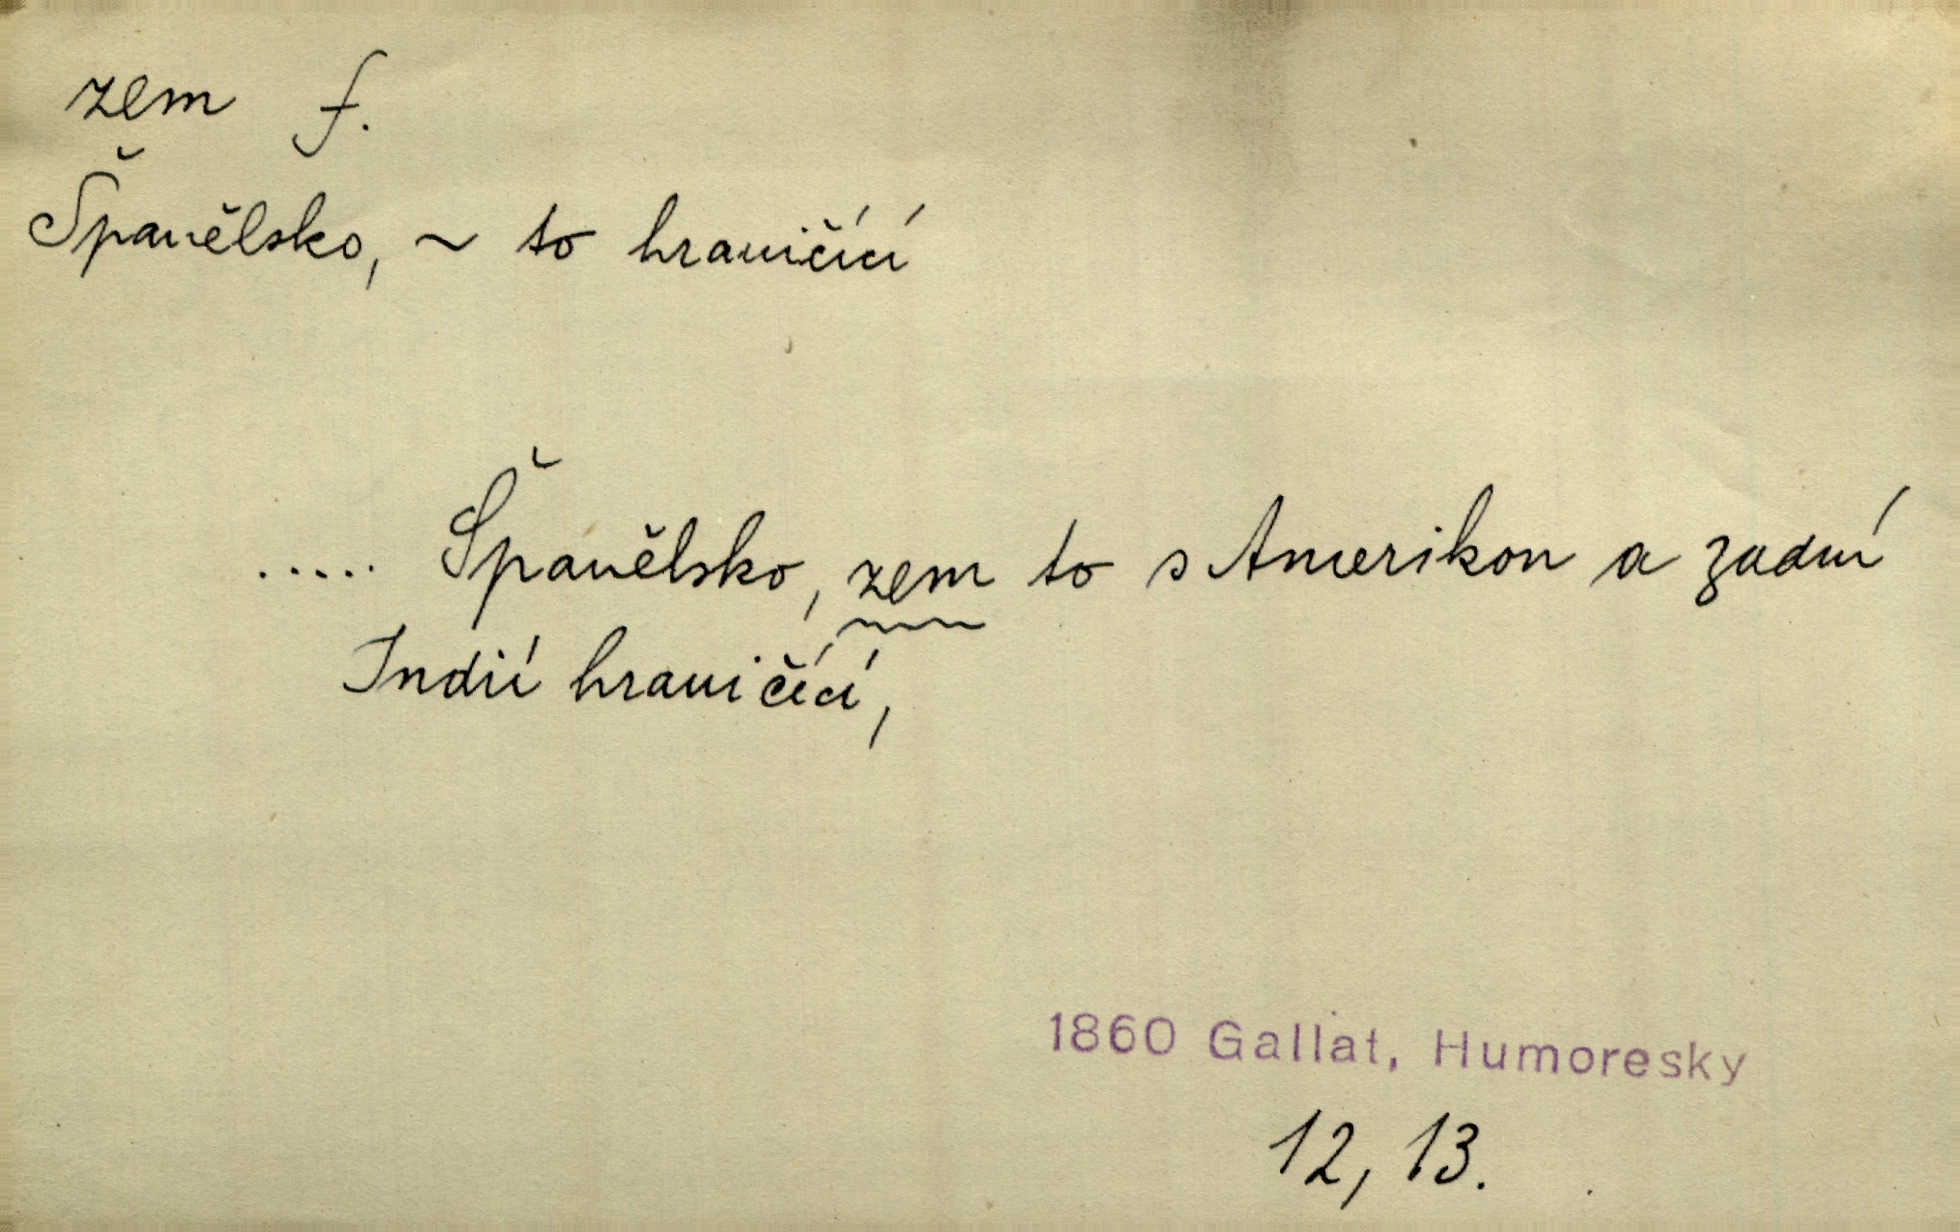 zem f.
Španělsko, ~ to hraničící
..... Španělsko, zem to s Amerikou a zadní
Indií hraničící,
1860 Gallat, Humoresky
12, 13.